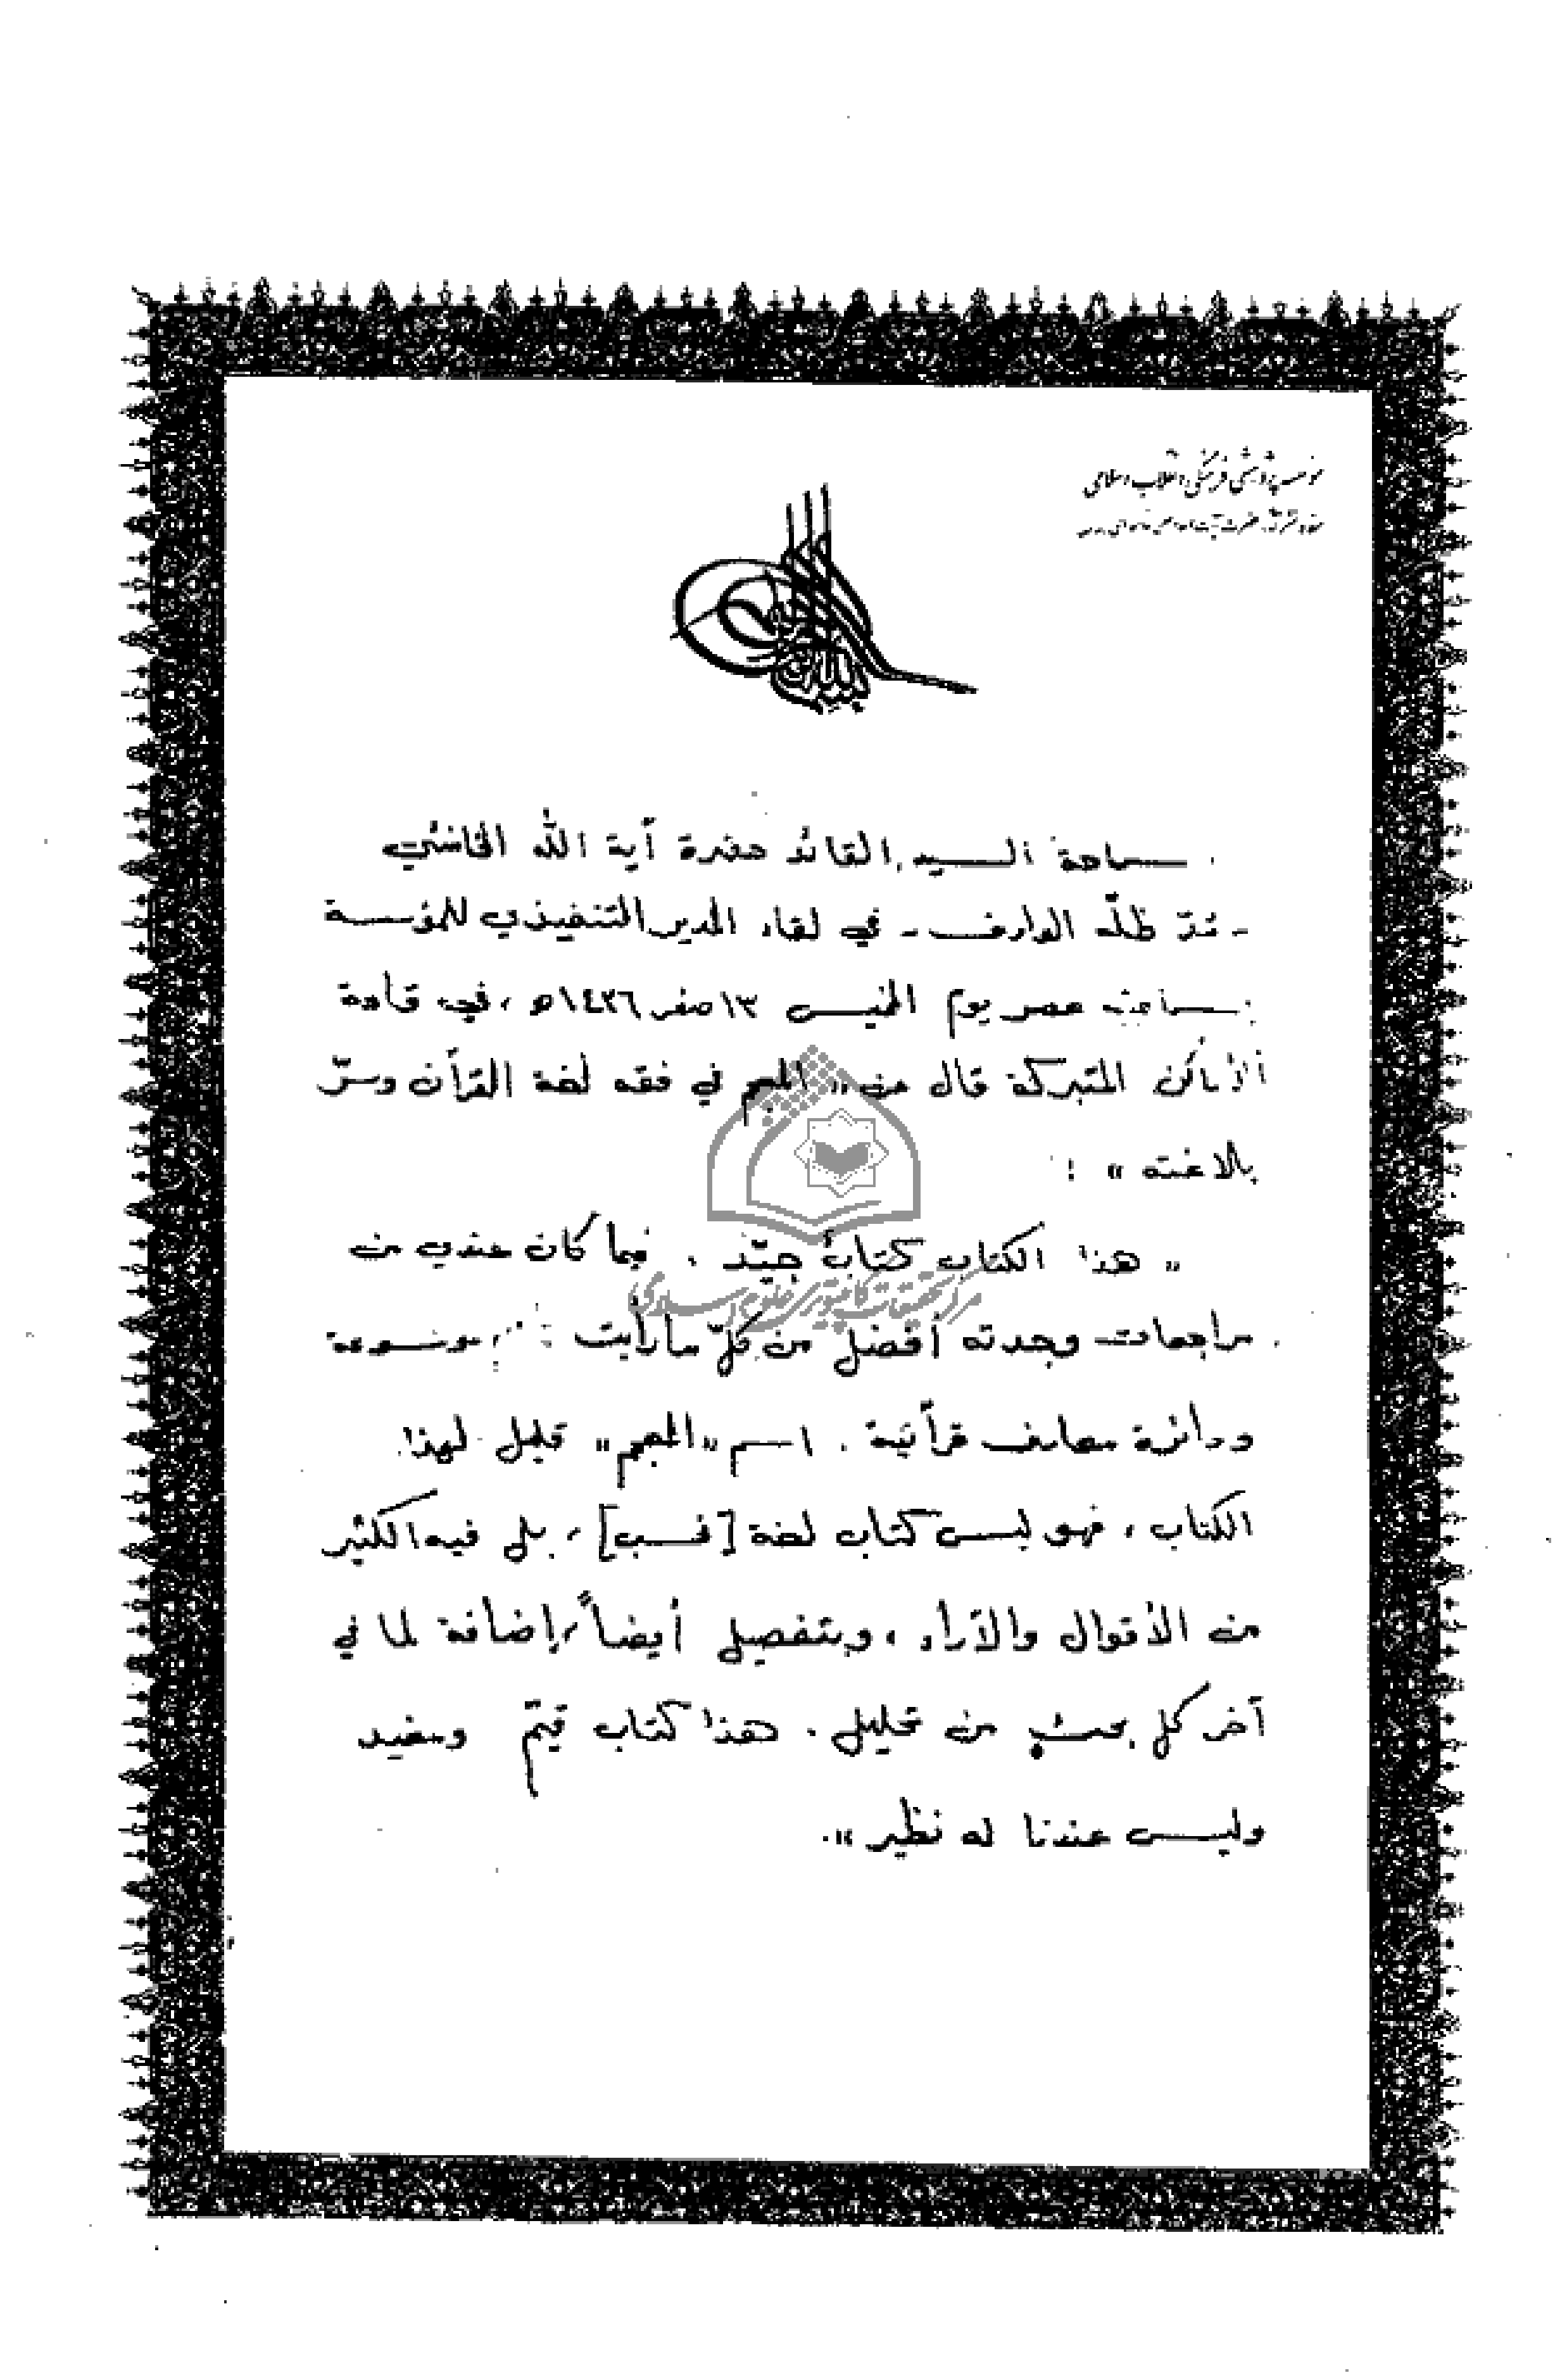 مؤسسه پژوهشی فرهنگی انقلاب اسلامی
سماحة السيد القائد حضرة آية الله الخامنئي
ـ مدّ ظلّه الوارف ـ في لقاء المدير التنفيذي للمؤسسة
بسماحته عصر يوم الخميس ١٣ صفر ١٤٢٦ه ، في قاعة
الأماكن المتبركة قال عن « المعجم في فقه لغة القرآن وسرّ
بلاغته » :
« هذا الكتاب كتابٌ جيّد . فيما كان عندي من
مراجعات وجدته أفضل من كلّ ما رأيت : موسوعة
ودائرة معارف قرآنية . اسم «المعجم» قليل لهذا
الكتاب ، فهو ليس كتاب لغة [فحسب] ، بل فيه الكثير
من الأقوال والآراء ، وبتفصيل أيضاً ، إضافة لما في
آخر كل بحثٍ من تحليل . هذا كتاب قيّم ومفيد
وليس عندنا له نظير ».
مرکز تحقیقات کامپیوتری علوم اسلامی